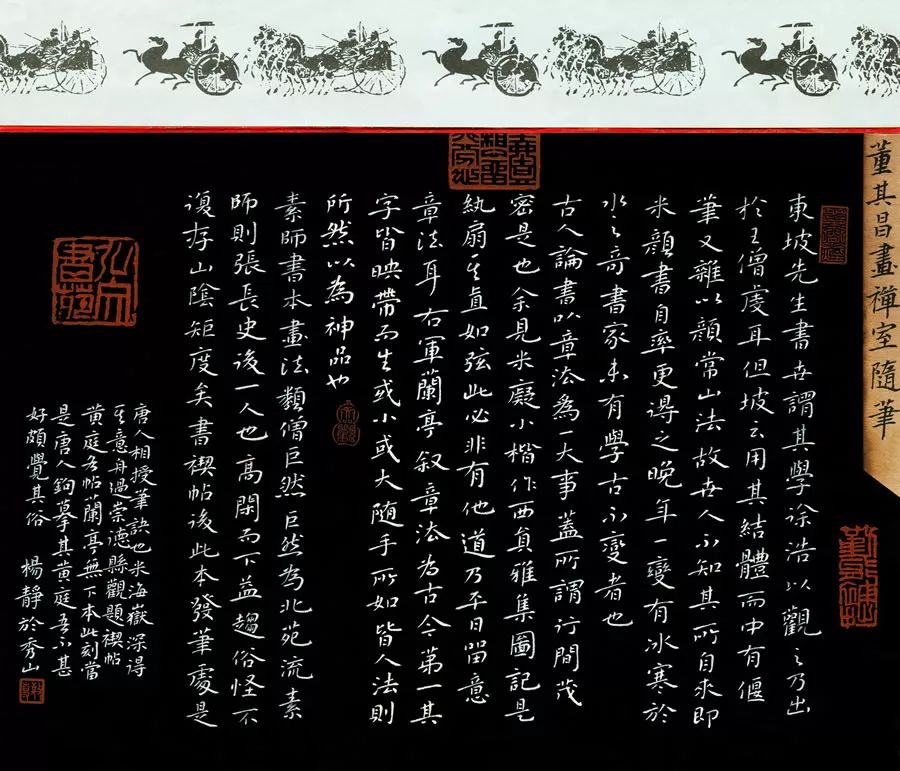 董其昌畫禪室隨筆
東坡先生書世謂其學徐浩以觀之乃出
於王僧虔耳但坡云用其結體而中有偃
筆又雜以顏常山法故世人不知其所自来即
米顏書自率更得之晚年一變有冰寒於
水之奇書家未有學古不變者也
古人論書以章法為一大事蓋所謂行間茂
密是也余見米癡小楷作西員雅集圖記是
紈扇其直如弦此必非有他道乃平日留意
章法耳右軍蘭亭叙章法为古今第一其
字皆映帶而生或小或大随手所如皆入法則
所然以為神品也
素師書本畫法類僧巨然巨然為北苑流素
師則張長史後一人也高閑而下益趨俗怪不
復存山陰矩度矣書禊帖後此本發筆處是
唐人相授筆訣也米海嶽深得
其意舟過崇德縣觀題禊帖
黄庭各帖蘭亭無下本此刻當
是唐人鉤摹其黄庭吾不甚
好頗覺其俗 楊靜於秀山